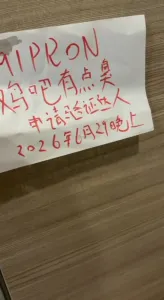 MIPRON
鸡吧有点臭
申请验证达人
2026年6月29晚上